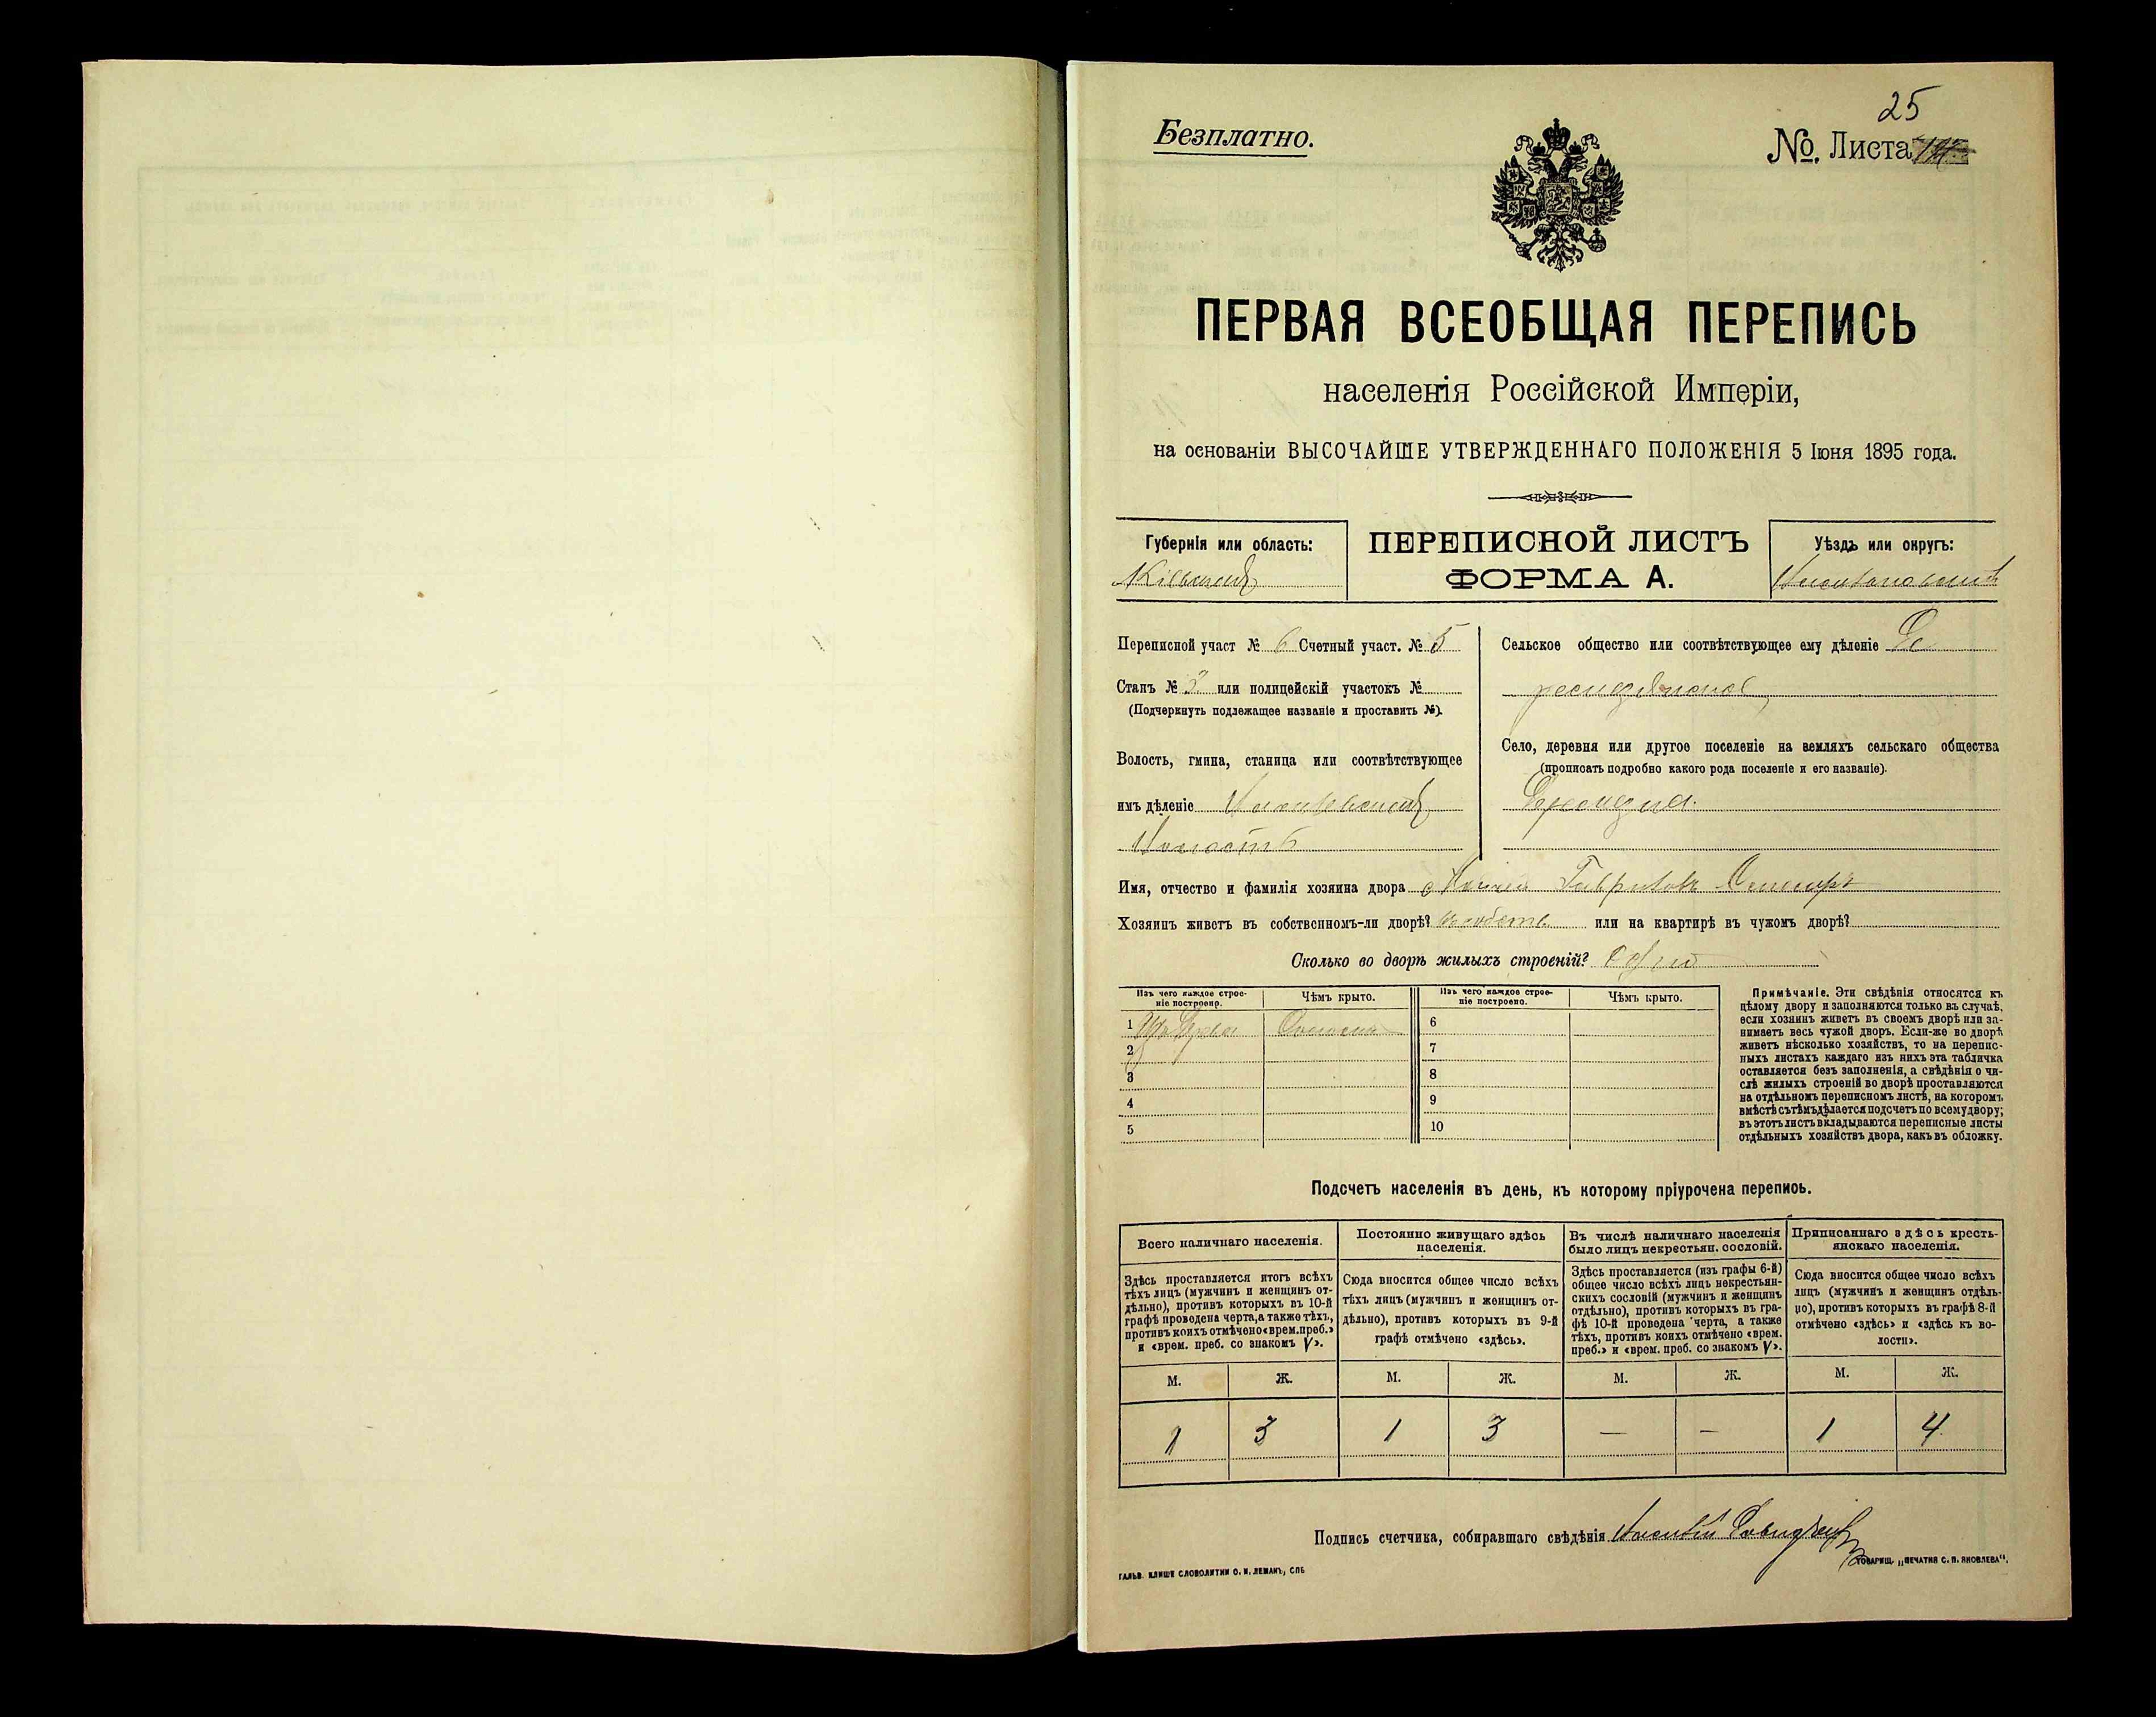 25
Безплатно.
№. Листа
ПЕРВАЯ ВСЕОБЩАЯ ПЕРЕПИСЬ
населенія Россійской Имперіи,
на основаніи ВЫСОЧАЙШЕ УТВЕРЖДЕННАГО ПОЛОЖЕНІЯ 5 Іюня 1895 года.
Губернія или область:
ПЕРЕПИСНОЙ ЛИСТЪ
ФОРМА А.
Уѣздъ или округъ:
Переписной участ № 6 Счетный участ. № 5
Станъ № 3 или полицейскій участокъ №
(Подчеркнуть подлежащее названіе и проставить №).
Волость, гмина, станица или соотвѣтствующее
имъ дѣленіе
Волость
Сельское общество или соотвѣтствующее ему дѣленіе
Село, деревня или другое поселеніе на земляхъ сельскаго общества
(прописать подробно какого рода поселеніе и его названіе).
Имя, отчество и фамилія хозяина двора
Хозяинъ живетъ въ собственномъ-ли дворѣ? или на квартирѣ въ чужомъ дворѣ?
Сколько во дворѣ жилыхъ строеній? Одно
Изъ чего каждое строе-
ніе построено.
Чѣмъ крыто.
Изъ чего каждое строе-
ніе построено.
Чѣмъ крыто.
1 Соломой 6
2 7
3 8
4 9
5 10
Примѣчаніе. Эти свѣдѣнія относятся къ
цѣлому двору и заполняются только въ случаѣ,
если хозяинъ живетъ въ своемъ дворѣ или за-
нимаетъ весь чужой дворъ. Если-же во дворѣ
живетъ нѣсколько хозяйствъ, то на перепис-
ныхъ листахъ каждаго изъ нихъ эта табличка
оставляется безъ заполненія, а свѣдѣнія о чи-
слѣ жилыхъ строеній во дворѣ проставляются
на отдѣльномъ переписномъ листѣ, на которомъ
вмѣстѣ съ тѣмъ дѣлается подсчетъ по всему двору;
въ этотъ листъ вкладываются переписные листы
отдѣльныхъ хозяйствъ двора, какъ въ обложку.
Подсчетъ населенія въ день, къ которому пріурочена перепись.
Всего наличнаго населенія.
Здѣсь проставляется итогъ всѣхъ
тѣхъ лицъ (мужчинъ и женщинъ от-
дѣльно), противъ которыхъ въ 10-й
графѣ проведена черта, а также тѣхъ,
противъ коихъ отмѣчено «врем. преб.»
и «врем. преб. со знакомъ V».
Постоянно живущаго здѣсь
населенія.
Сюда вносится общее число всѣхъ
тѣхъ лицъ (мужчинъ и женщинъ от-
дѣльно), противъ которыхъ въ 9-й
графѣ отмѣчено «здѣсь».
Въ числѣ наличнаго населенія
было лицъ некрестьян. сословій.
Здѣсь проставляется (изъ графы 6-й)
общее число всѣхъ лицъ некрестьян-
скихъ сословій (мужчинъ и женщинъ
отдѣльно), противъ которыхъ въ гра-
фѣ 10-й проведена черта, а также
тѣхъ, противъ коихъ отмѣчено «врем.
преб.» и «врем. преб. со знакомъ V».
Приписаннаго здѣсь кресть-
янскаго населенія.
Сюда вносится общее число всѣхъ
лицъ (мужчинъ и женщинъ отдѣль-
но), противъ которыхъ въ графѣ 8-й
отмѣчено «здѣсь» и «здѣсь къ во-
лости».
М. Ж. М. Ж. М. Ж. М. Ж.
1 3 1 3 — — 1 4
Подпись счетчика, собиравшаго свѣдѣнія
ГАЛЬВ. КЛИШЕ СЛОВОЛИТНИ О. И. ЛЕМАНЪ, СПБ
ТОВАРИЩ. „ПЕЧАТНЯ С. П. ЯКОВЛЕВА".